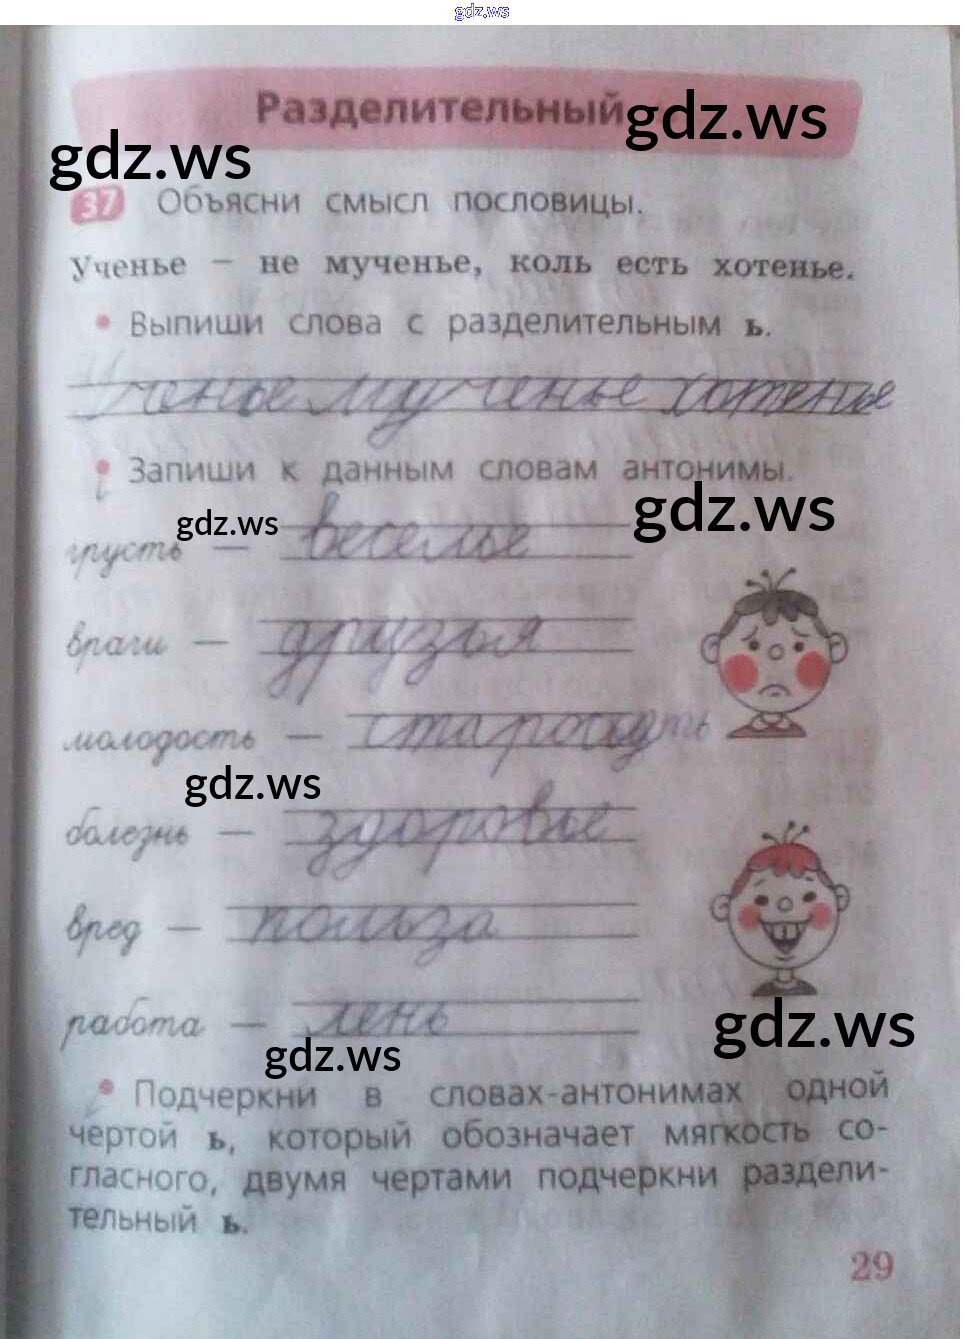 gdz.ws
Разделительный
gdz.ws
gdz.ws
37 Объясни смысл пословицы.
Ученье – не мученье, коль есть хотенье.
• Выпиши слова с разделительным ь.
Ученье мученье хотенье
• Запиши к данным словам антонимы.
gdz.ws
gdz.ws
грусть — веселье
враги — друзья
молодость — старость
gdz.ws
болезнь — здоровье
вред — польза
работа — лень
gdz.ws
gdz.ws
• Подчеркни в словах-антонимах одной
чертой ь, который обозначает мягкость со-
гласного, двумя чертами подчеркни раздели-
тельный ь.
29